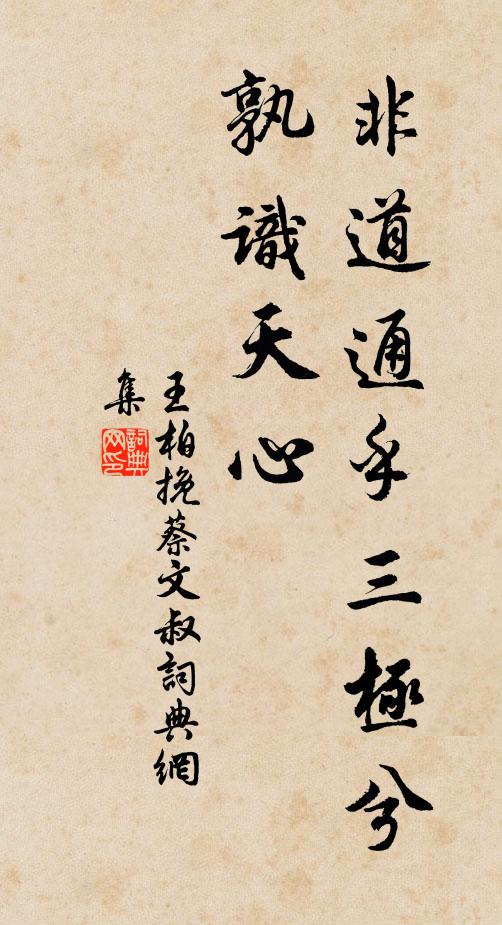 非道通乎三極兮
孰識天心
王柏挽蔡文叔詞典網
集
詞典
网印